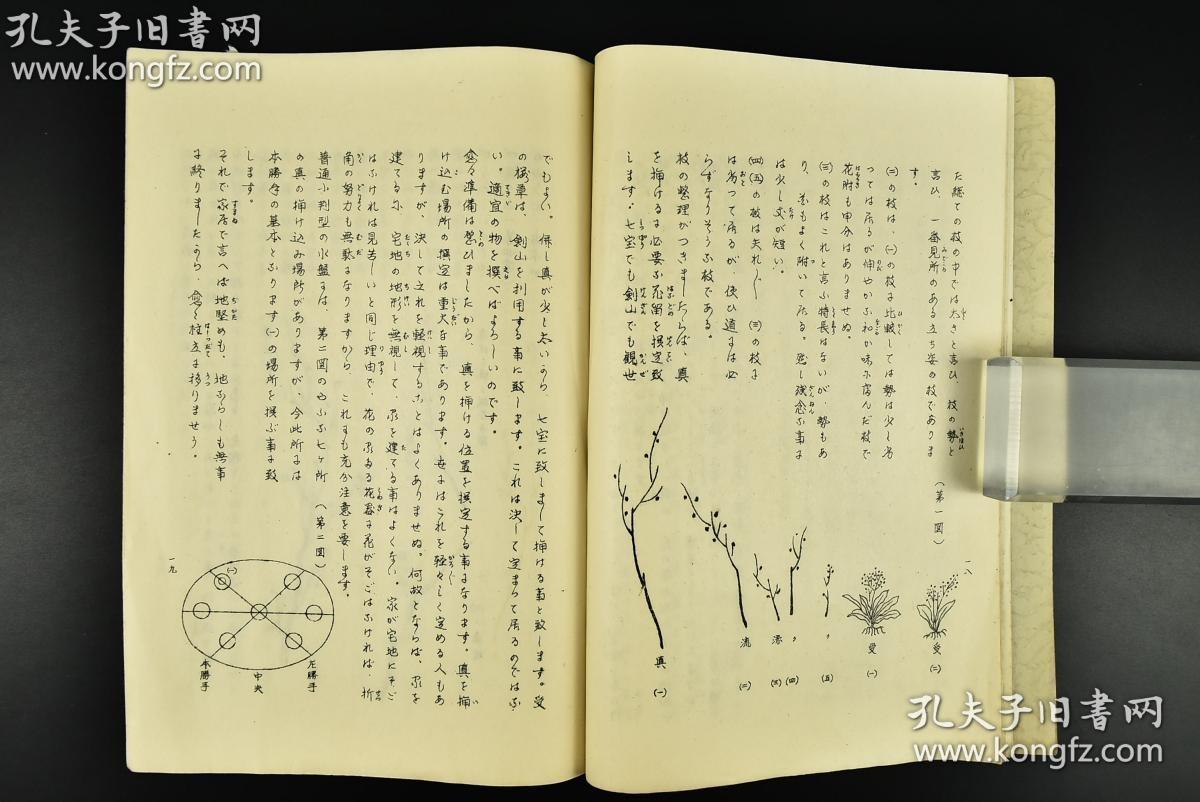 孔夫子旧书网
www.kongfz.com
た総ての枝の中では大きと言ひ、枝の勢と
言ひ、一番見所のある立ち姿の枝でありま
す。
㈡の枝は、㈠の枝に比較しては勢は少し劣
つては居るが伸やかな和か味に富んだ枝で
花附も申分はありませぬ。
㈢の枝はこれと言ふ特長はないが、勢もあ
り、花もよく附いて居る。惜し残念な事は
は少し丈が短い。
㈣㈤の枝は矢れし ㈢の枝よ
は劣つて居るが、使ひ道には必
らずなりそうな枝である。
枝の整理がつきましたらば、真
を挿けるに必要な花留を撰定致
します。七宝でも剣山でも観世
(第一図)
一八
真 ㈠
流 ㈡
㈢
〃 ㈣
〃 ㈤
受 ㈠
受 ㈡
でもよい。併し真が少し太いから、七宝に致しまして挿ける事と致します。受
の挿草は、剣山を利用する事に致します。これは決して定まつて居るのではな
い。適宜の物を撰べばよろしいのです。
愈々準備は整ひましたから、真を挿ける位置を撰定する事になります。真を挿
け込む場所の撰定は重大な事であります。世にはこれを軽々しく定める人もあ
りますが、決して之れを軽視することはよくありませぬ。何故とならば、家を
建てるに 宅地の地形を無視して、家を建てる事はよくない。家が宅地にそご
はなければ見苦しいと同じ理由で、花の家なる花器に花がそごはなければ、折
角の努力も無駄になりますから これにも充分注意を要します。
普通小判型の水盤には、第二図のやふな七ヶ所
の真の挿け込み場所がありますが、今此所には
本勝手の基本となります㈠の場所を撰ぶ事に致
します。
それで家居で言へば地堅めも、地ならしも無事
に終りましたから、愈々柱立に移りませう。
(第二図)
(一)
左勝手
中央
本勝手
一九
孔夫子旧书网
www.kongfz.com